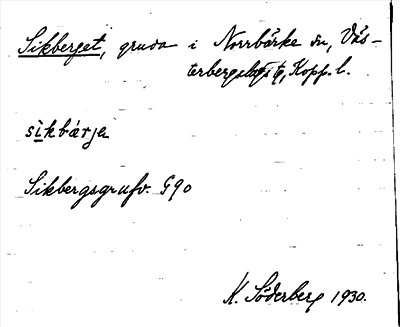 Sikberget, gruva i Norrbärke sn, Väs-
terbergslags tg, Kopp. l.
sikbárje
Sikbergsgrufv. G90
K. Söderberg 1930.